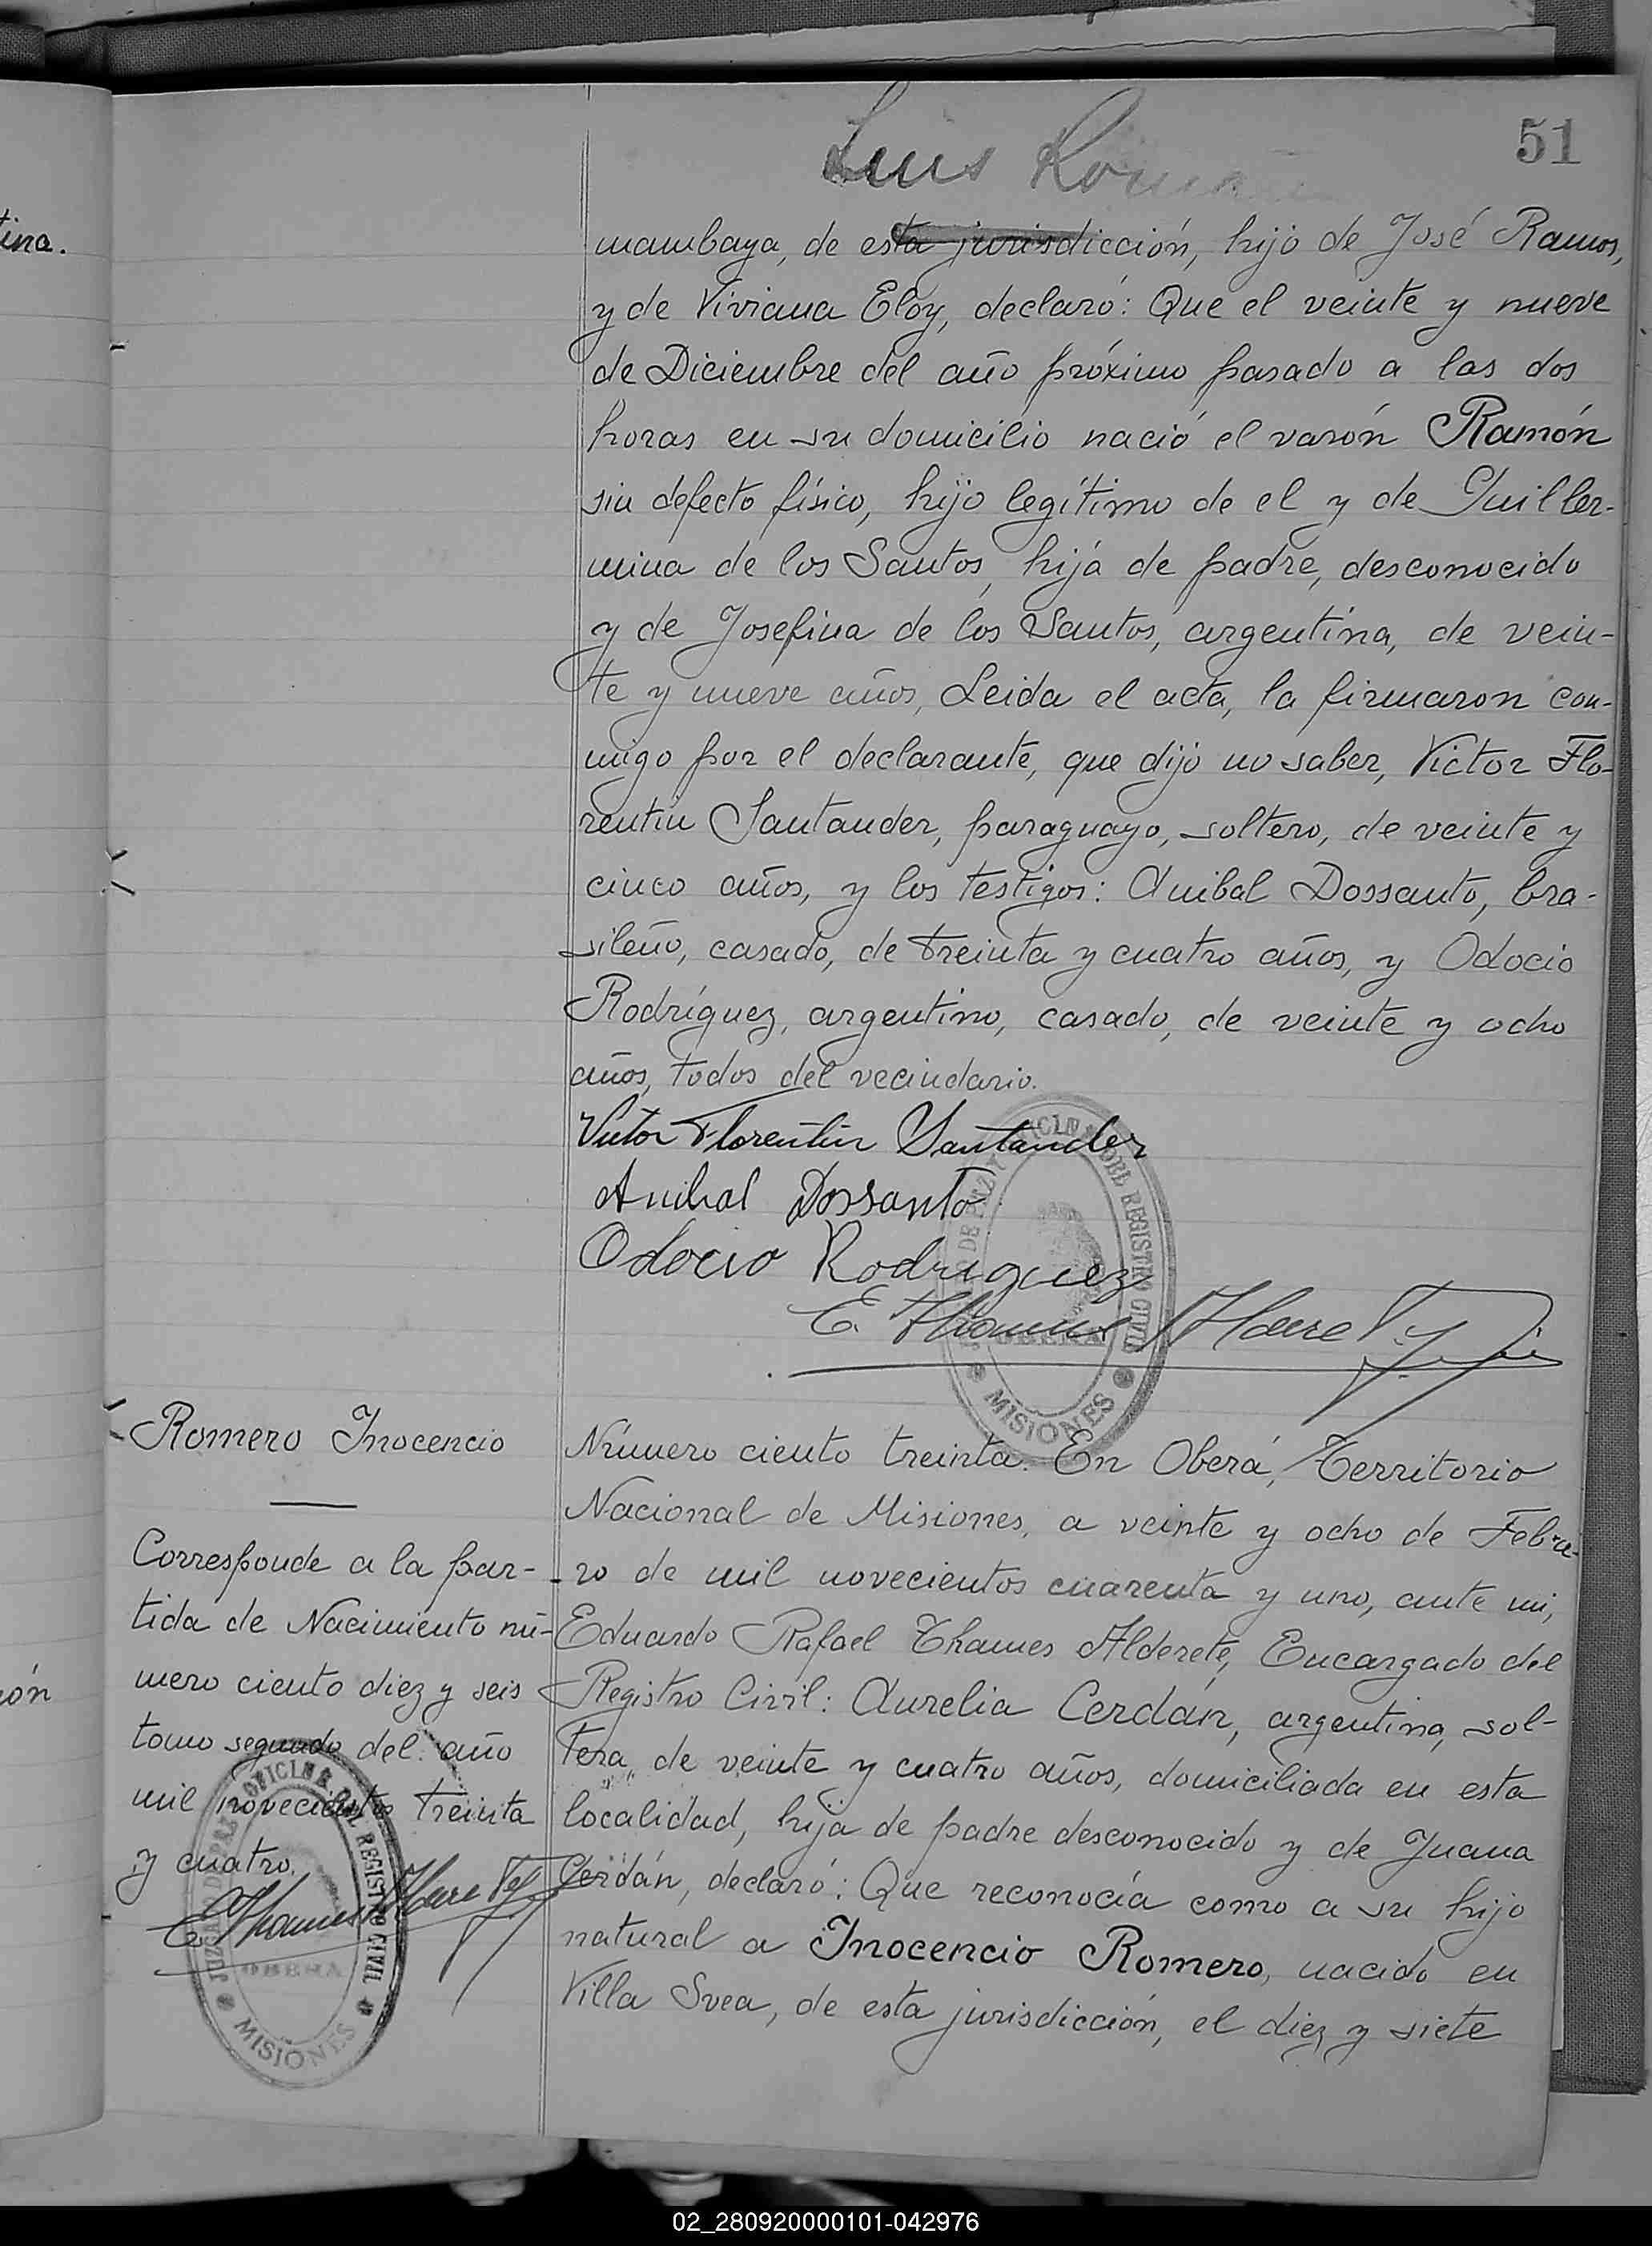 51
Luis
mambaya, de esta jurisdicción, hijo de José Ramos,
y de Viviana Eloy, declaró: Que el veinte y nueve
de Diciembre del año próximo pasado a las dos
horas en su domicilio nació el varón Ramón
sin defecto físico, hijo legítimo de el y de Guiller-
mina de los Santos, hija de padre, desconocido
y de Josefina de los Santos, argentina, de vein-
te y nueve años, Leida el acta, la firmaron con-
migo por el declarante, que dijo no saber, Victor Flo-
rentin Santander, paraguayo, soltero, de veinte y
cinco años, y los testigos: Anibal Dossanto, bra-
sileño, casado, de treinta y cuatro años, y Odocio
Rodríguez, argentino, casado, de veinte y ocho
años, todos del vecindario.
Victor Florentin Santander
Anibal Dossanto
Odocio Rodriguez
OFICINA DEL REGISTRO CIVIL
OBERA
MISIONES
Romero Inocencio
Corresponde a la par-
tida de Nacimiento nú-
mero ciento diez y seis
tomo segundo del año
mil novecientos treinta
y cuatro.
JUZGADO DE PAZ Y OFICINA DEL REGISTRO CIVIL
OBERA
MISIONES
Número ciento treinta. En Oberá, Territorio
Nacional de Misiones, a veinte y ocho de Febre-
ro de mil novecientos cuarenta y uno, ante mi,
Eduardo Rafael Thames Alderete, Encargado del
Registro Civil: Aurelia Cerdán, argentina, sol-
tera, de veinte y cuatro años, domiciliada en esta
localidad, hija de padre desconocido y de Juana
Cerdán, declaró: Que reconocía como a su hijo
natural a Inocencio Romero, nacido en
Villa Svea, de esta jurisdicción, el diez y siete
tina.
ión
02_280920000101-042976